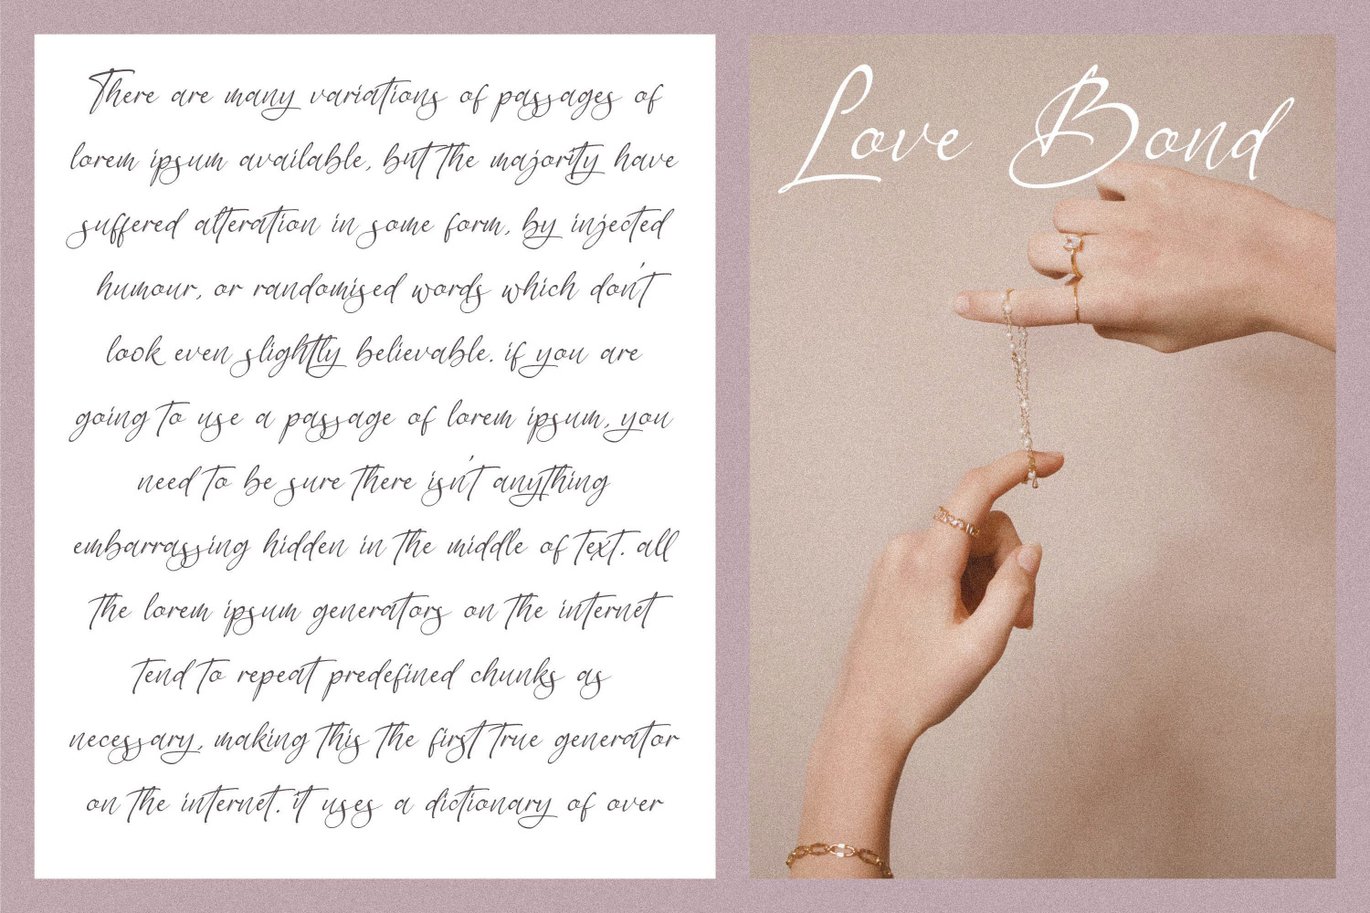 There are many variations of passages of
lorem ipsum available, but the majority have
suffered alteration in some form, by injected
humour, or randomised words which don't
look even slightly believable. if you are
going to use a passage of lorem ipsum, you
need to be sure there isn't anything
embarrassing hidden in the middle of text. all
the lorem ipsum generators on the internet
tend to repeat predefined chunks as
necessary, making this the first true generator
on the internet. it uses a dictionary of over
Love Bond